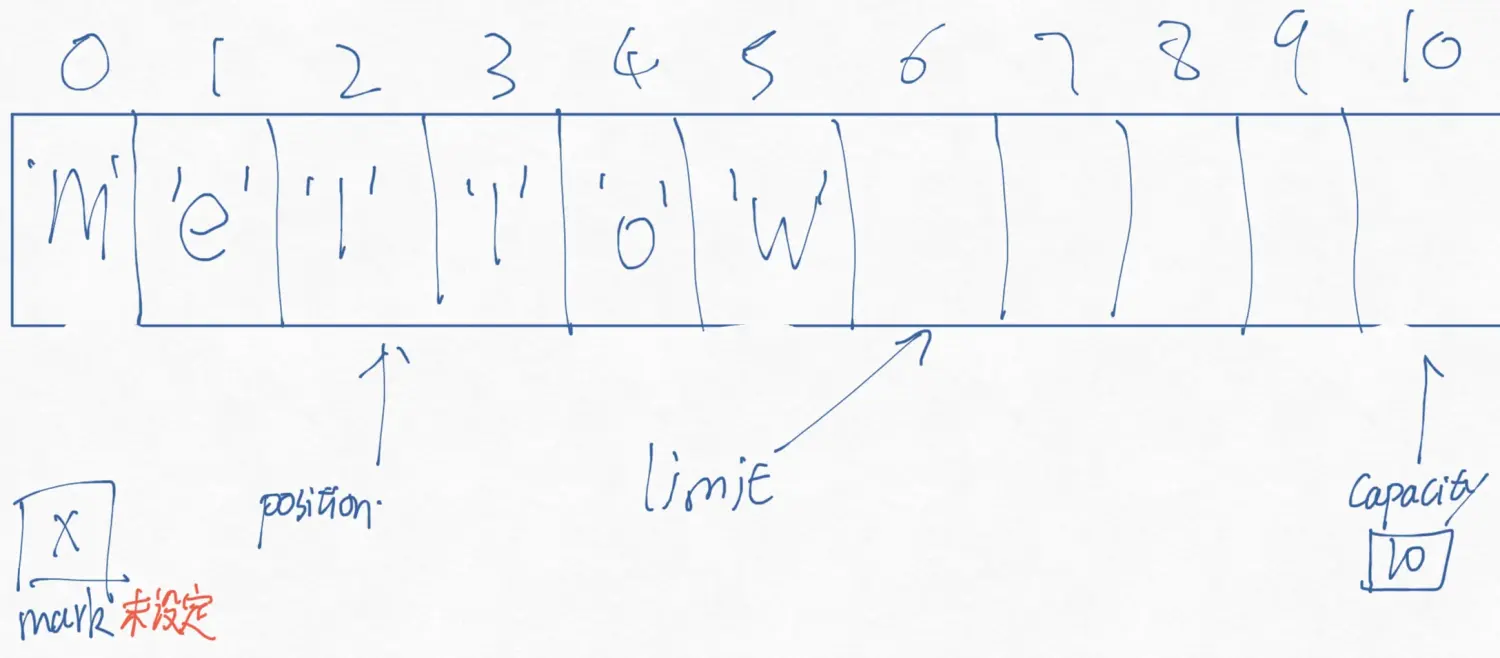 0 1 2 3 4 5 6 7 8 9 10
'M' 'e' 'l' 'l' 'o' 'w'
position.
limit
capacity
10
X
mark 未设定